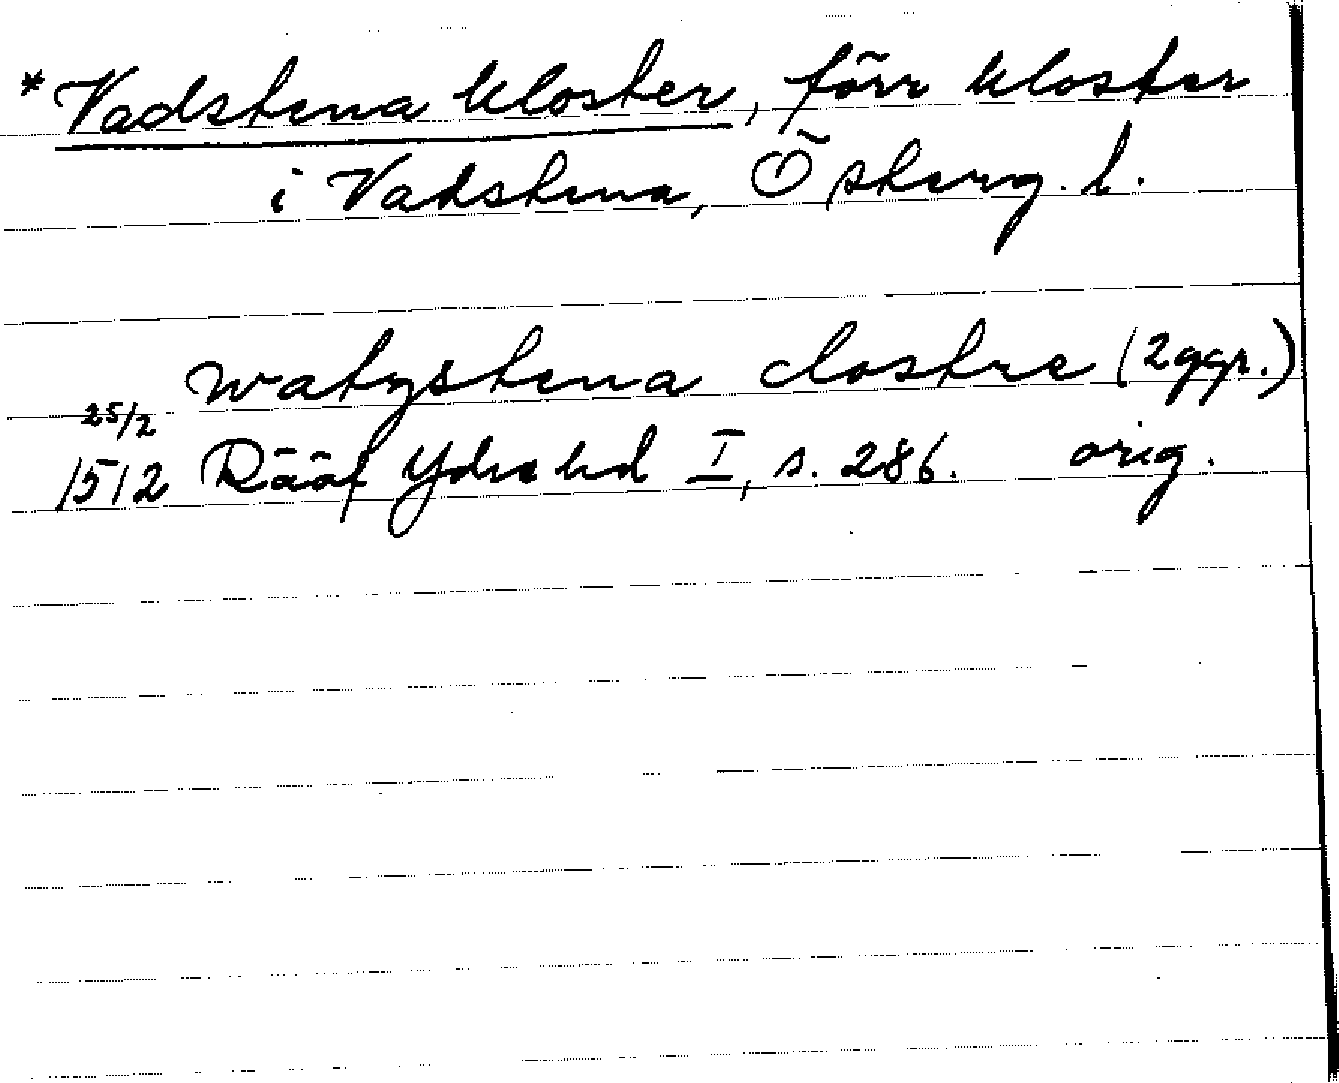 *Vadstena kloster, förr kloster
i Vadstena, Österg. l.
watzstena clostre (2ggr.)
25/2
1512 Rääf Ydre hd I, s. 286. orig.